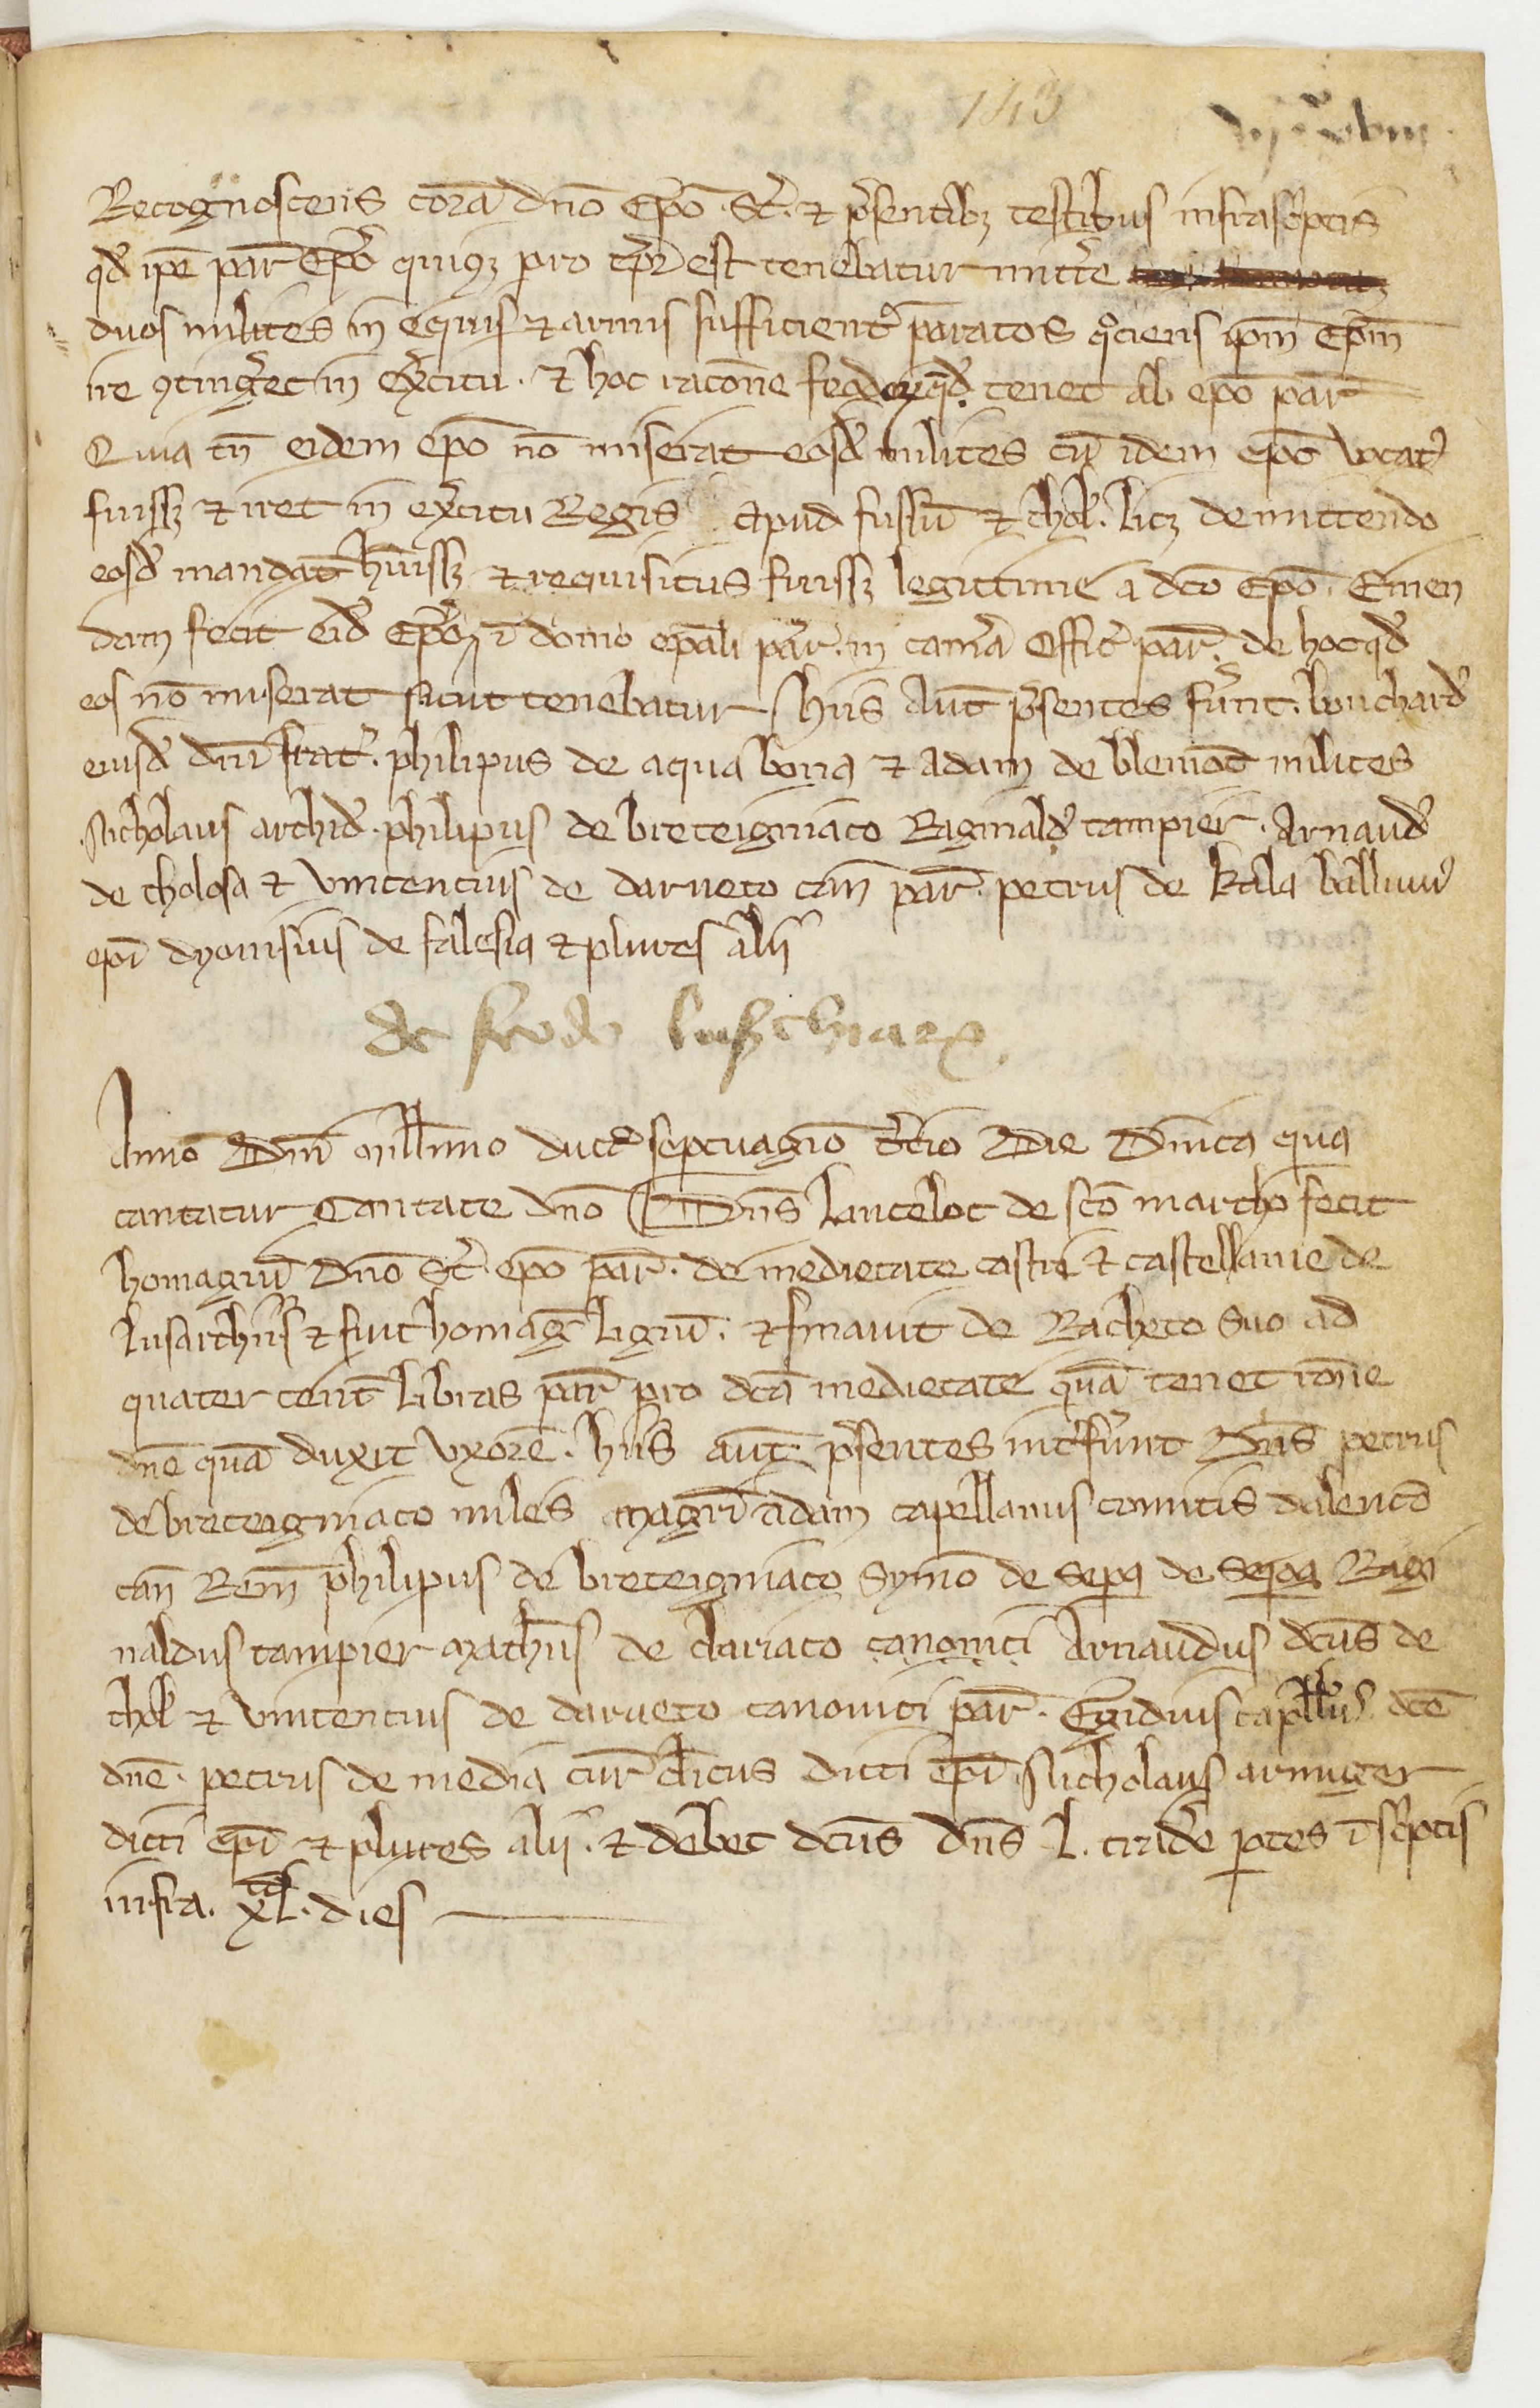 143
Recognoscens corã dño Epõ. St̃. ⁊ p̃sentibꝫ testibus infrascͥptis
qd̃ ipẽ par̃ Epõ quicꝫ pro tp̃r est tenebatur mitt̃e
duos milites in equis ⁊ armis sufficient̃ paratos qͦciens ip̃m Ep̃m
ire ꝯting̃et in ex̃citu. ⁊ hoc racõne feodoꝝ qd̃ tenet ab epõ par̃
Quia tñ eidem epõ nõ miserat eosd̃ milites cũ idem ep̃c vocatꝰ
fuissꝫ ⁊ iret in ex̃citu Regis apud fussũ ⁊ thol̃. licꝫ de mittendo
eosd̃ mandat̃ h̃uissꝫ ⁊ requisitus fuissꝫ legittime a dc̃o Epõ. Emen
dam fecit eid̃ Epõ ĩ domo ep̃ali par̃. in cam̃a Offic̃ par̃. de hoc qd̃
eos nõ miserat sicut tenebatur hiis aut̃ p̃sentes fũnt. bouchardꝰ
eiusd̃ dñi frat̃. philipus de aqua bona ⁊ adam de blemõt milites
Nicholaus archid̃. philipus de breteigniaco Raginald̃ tampier. Arnaud̃
de tholosa ⁊ vincencius de darueto cañ par̃. petrus de kala balliuuꝰ
epĩ dyonisius de falesia ⁊ plures alii
de feodo lusarchiarꝝ
Anno Dñi millĩmo ducẽ septuagĩo t̃cio Die Dñica qua
cantatur Cantate dño Dñs Lancelot de scõ marcho fecit
homagiũ Dño St̃. epõ par̃. de medietate castri ⁊ castellanie de
lusarchiis ⁊ fuit homag̃ ligiũ. ⁊ finauit de Racheto suo ad
quater cent̃ libras par̃ pro dc̃a medietate quã tenet rõne
dñe quã duxit vxorẽ. hiis aut̃ p̃sentes int̃fũnt Dñs petrus
de breteigniaco miles magr̃i adam capellanus comitis dalencõ
cañ Rem̃ philipus de breteigniaco Symõ de sepa de seqoa Ragi
naldus tampier Math̃s de clariaco canonici Arnaudus dc̃us de
thol̃ ⁊ vincencius de darueto canonici par̃. Egidius capll̃s dc̃e
dñe. petrus de media cur̃ cl̃icus dicti epĩ. Nicholaus armiger
dicti epĩ ⁊ plures alii. ⁊ debet dc̃us dñs l. trad̃e ꝑtes ĩ scͥptis
infra. xl. dies